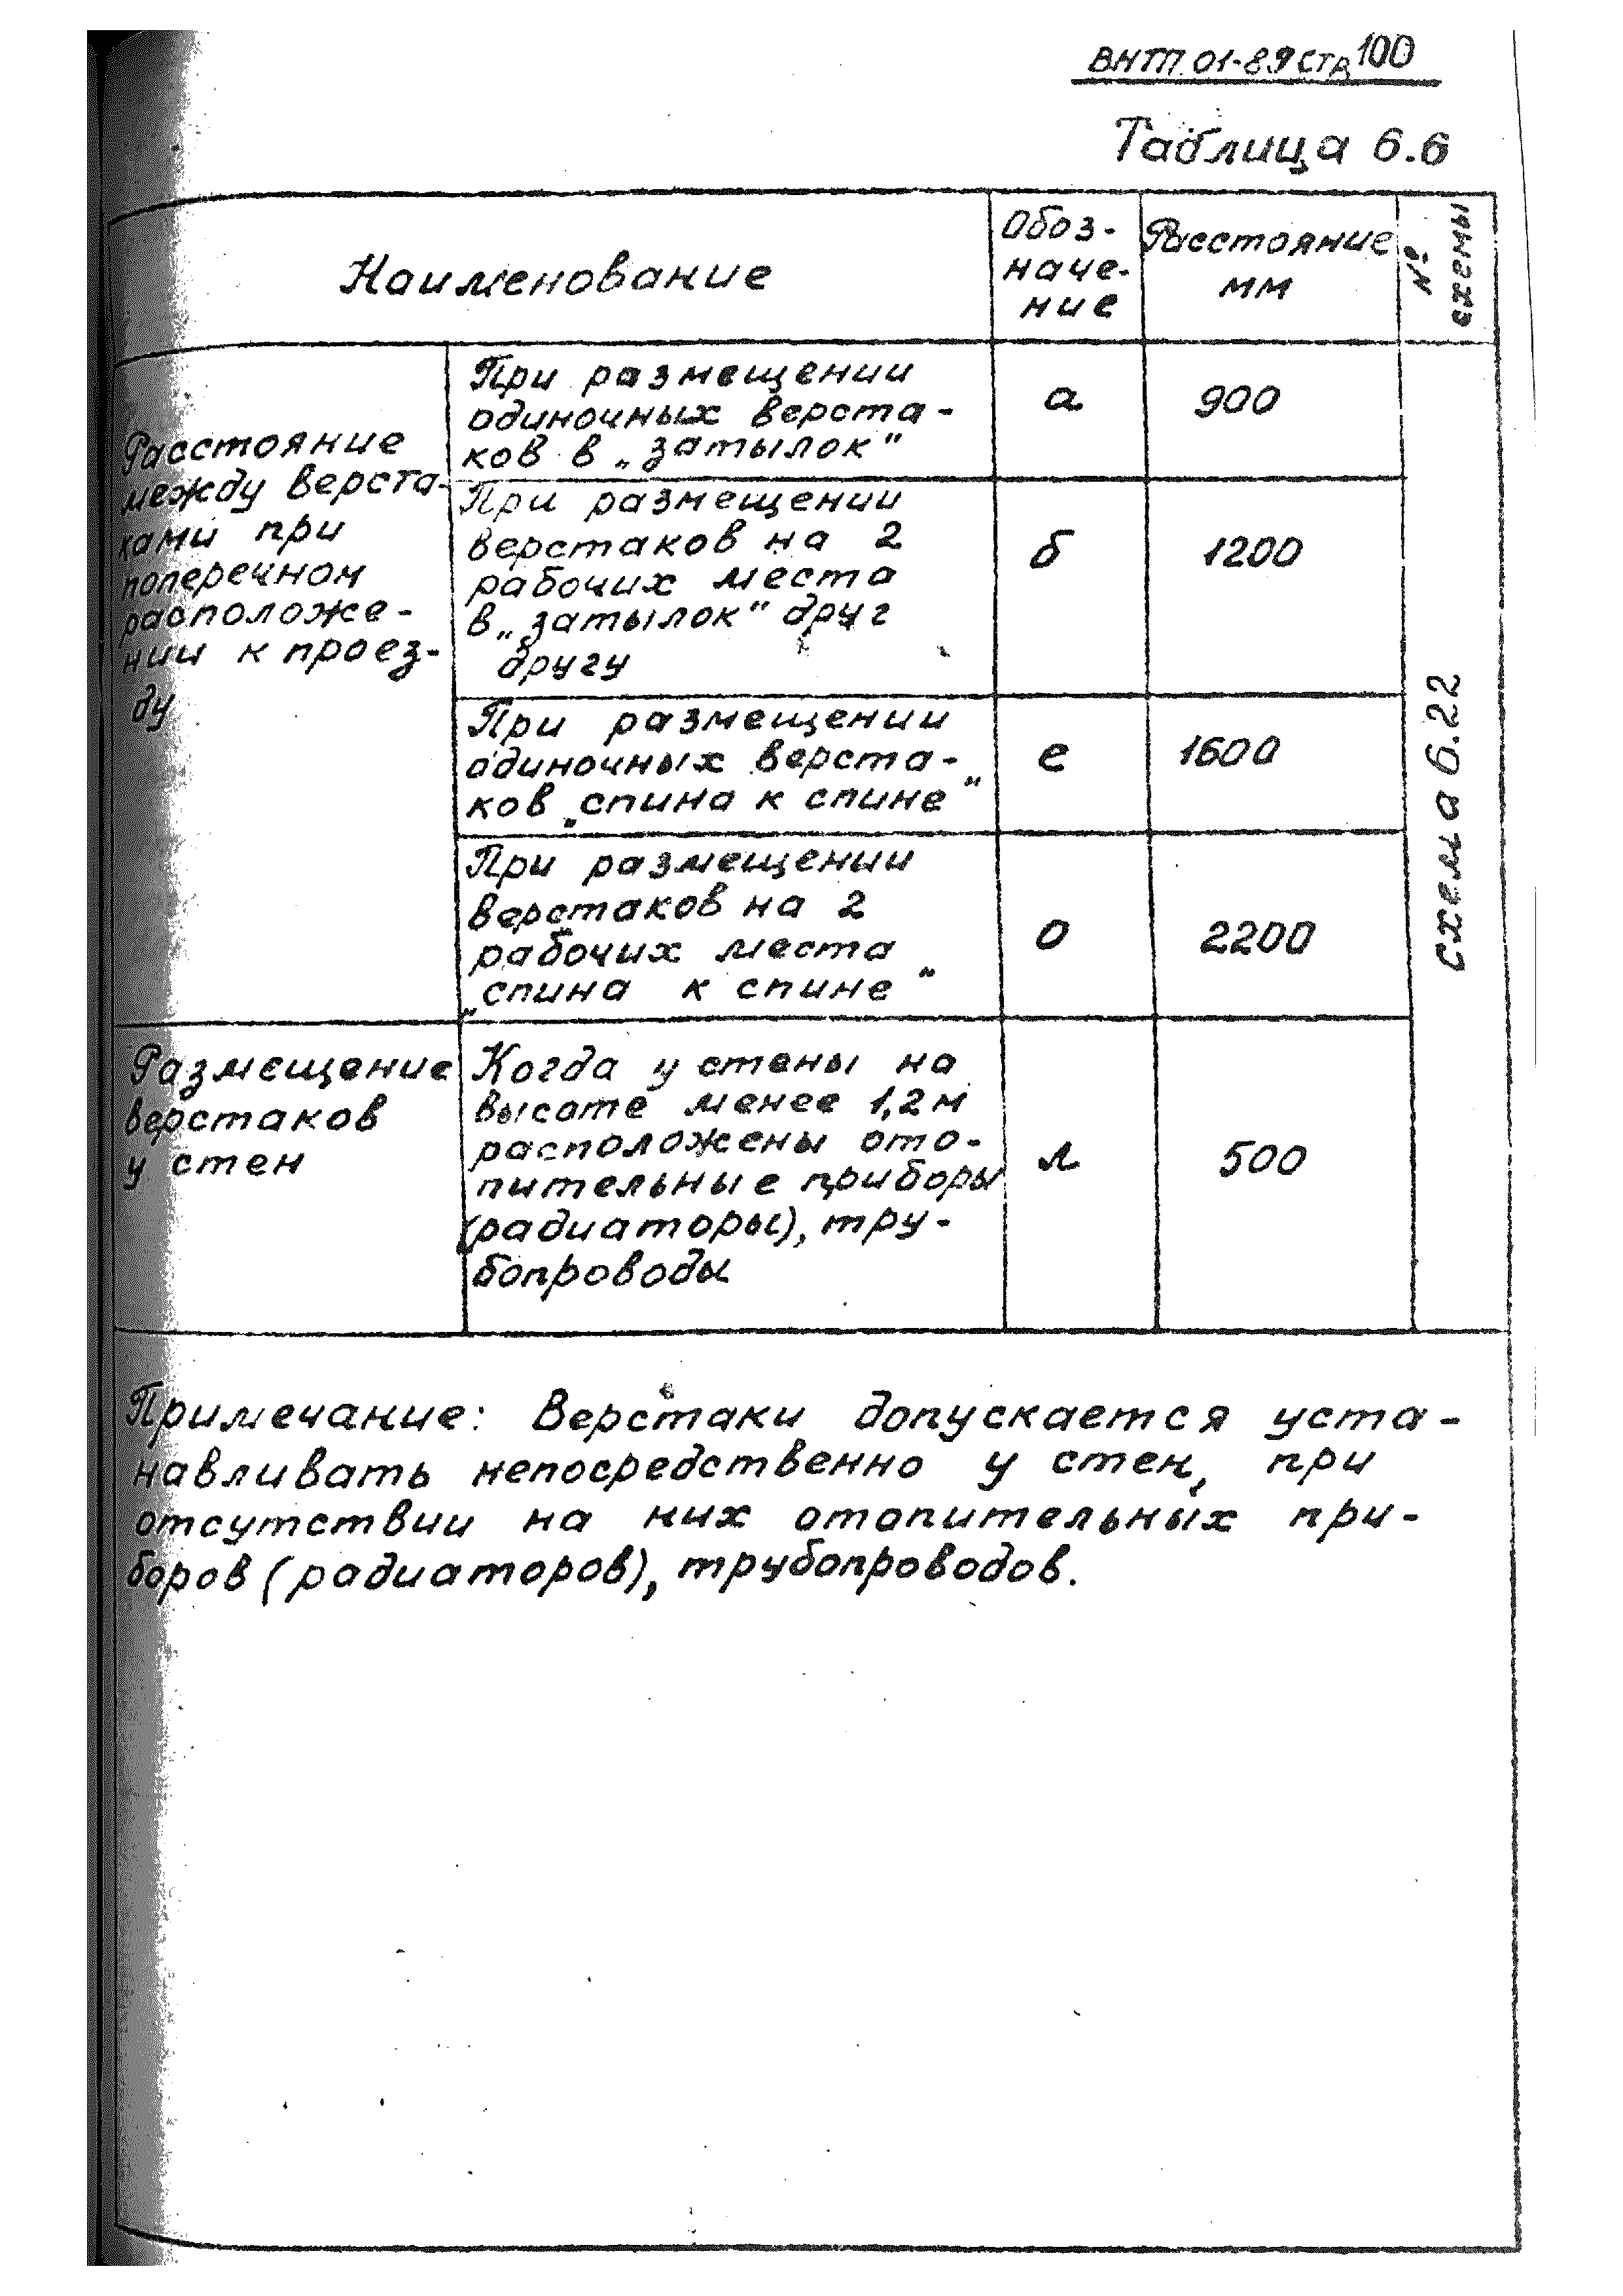 ВНТП 01-89 Стр 100
Таблица 6.6
Наименование
Обоз-
наче-
ние
Расстояние
мм
№
схемы
Расстояние
между верста-
ками при
поперечном
расположе-
нии к проез-
ду
При размещении
одиночных верста-
ков в „затылок"
а
900
При размещении
верстаков на 2
рабочих места
в „затылок" друг
другу
б
1200
При размещении
одиночных верста-
ков „спина к спине"
е
1600
При размещении
верстаков на 2
рабочих места
„спина к спине"
о
2200
схема 6.22
Размещение
верстаков
у стен
Когда у стены на
высоте менее 1,2 м
расположены ото-
пительные приборы
(радиаторы), тру-
бопроводы
л
500
Примечание: Верстаки допускается уста-
навливать непосредственно у стен, при
отсутствии на них отопительных при-
боров (радиаторов), трубопроводов.